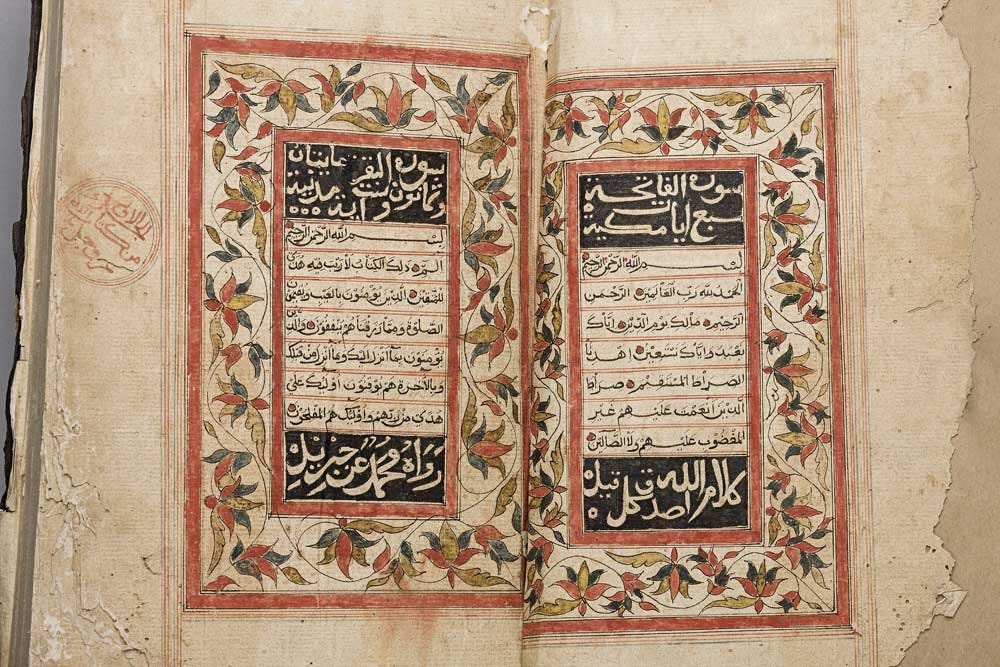 سورة الفاتحة
سبع ايات مكية
بسم الله الرحمن الرحيم
الحمد لله رب العالمين الرحمن
الرحيم مالك يوم الدين اياك
نعبد واياك نستعين اهدنا
الصراط المستقيم صراط
الذين انعمت عليهم غير
المغضوب عليهم ولا الضالين
كلام الله اصدق كل قيل
سورة البقرة مايتان
وثمانون وست آية مدنية
بسم الله الرحمن الرحيم
الم ذلك الكتاب لا ريب فيه هدى
للمتقين الذين يؤمنون بالغيب ويقيمون
الصلوة ومما رزقناهم ينفقون والذين
يؤمنون بما انزل اليك وما انزل من قبلك
وبالآخرة هم يوقنون اولئك على
هدى من ربهم واولئك هم المفلحون
رواه محمد عن جبريل